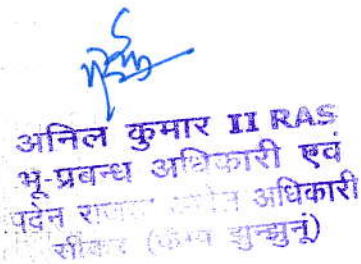 अनिल कुमार II RAS
भू-प्रबन्ध अधिकारी एवं
पदेन राजस्व अधिकारी
सीकर (कैम्प झुन्झुनूं)